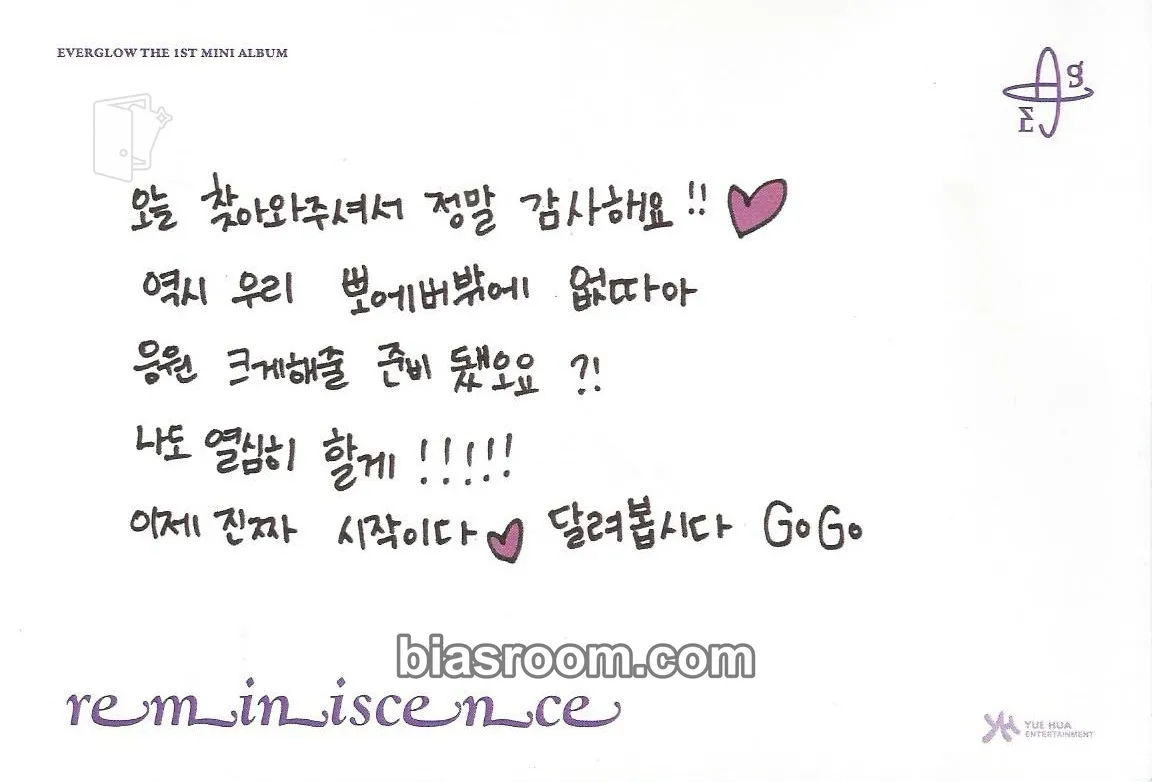 EVERGLOW THE 1ST MINI ALBUM
오늘 찾아와주셔서 정말 감사해요!!
역시 우리 뽀에버밖에 없따아
응원 크게해줄 준비 됐오요 ?!
나도 열심히 할게 !!!!!
이제 진짜 시작이다 달려봅시다 GoGo
biasroom.com
reminiscence
YUE HUA
ENTERTAINMENT